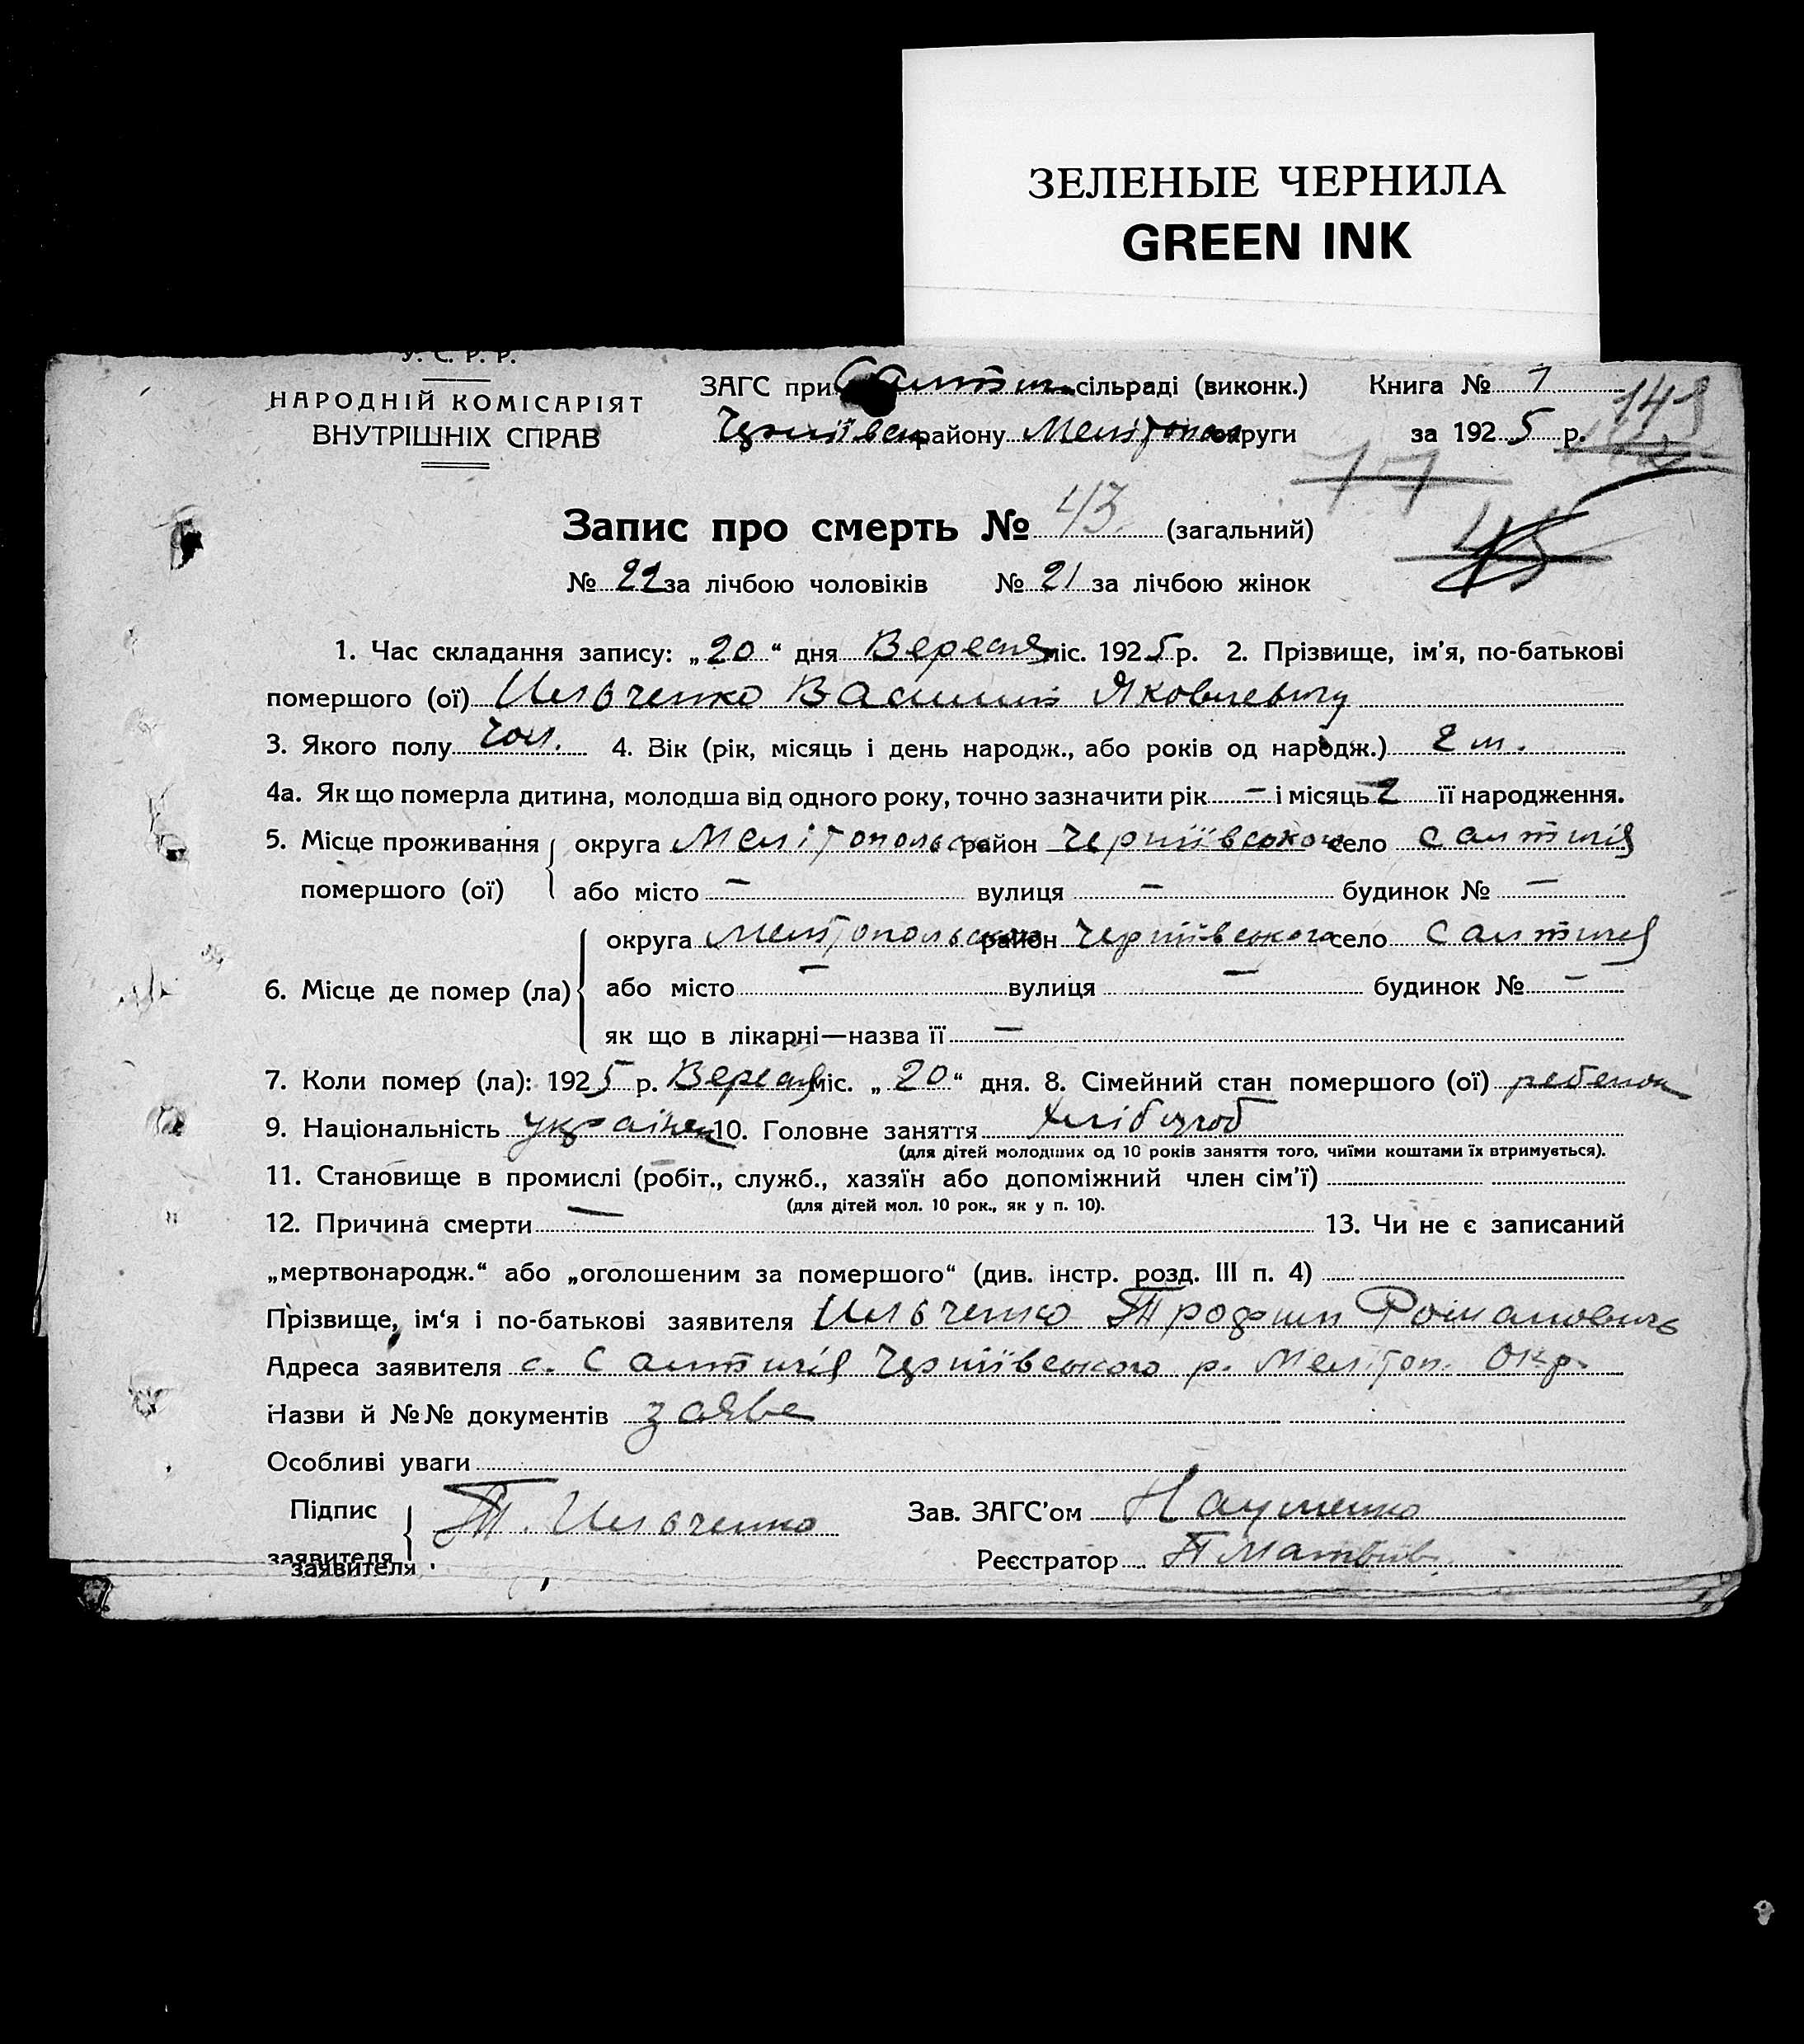 ЗЕЛЕНЫЕ ЧЕРНИЛА
GREEN INK
У. С. Р. Р.
НАРОДНІЙ КОМІСАРІЯТ
ВНУТРІШНІХ СПРАВ
ЗАГС при сільраді (виконк.) Книга № 1
району Меліtопол округи за 1925 р.
149
77
Запис про смерть № 43 (загальний)
45
№ 22 за лічбою чоловіків № 21 за лічбою жінок
1. Час складання запису: „20“ дня Вересня міс. 1925 р. 2. Прізвище, ім'я, по-батькові
помершого (ої) Ильченко Василий Яковлевичу
3. Якого полу чол. 4. Вік (рік, місяць і день народж., або років од народж.) 2 м.
4а. Як що померла дитина, молодша від одного року, точно зазначити рік – і місяць 2 її народження.
5. Місце проживання округа Мелітопольсько район Чернїївського село Салтичія
помершого (ої) або місто – вулиця – будинок № –
округа Мелітопольсько район Чернїївського село Салтичія
6. Місце де помер (ла) або місто – вулиця – будинок № –
як що в лікарні—назва її –
7. Коли помер (ла): 1925 р. Вересня міс. „20“ дня. 8. Сімейний стан помершого (ої) ребенок
9. Національність українец 10. Головне заняття хлібороб
(для дітей молодших од 10 років заняття того, чиїми коштами їх втримується).
11. Становище в промислі (робіт., служб., хазяїн або допоміжний член сім'ї)
(для дітей мол. 10 рок., як у п. 10).
12. Причина смерти – 13. Чи не є записаний
„мертвонародж.“ або „оголошеним за помершого“ (див. інстр. розд. III п. 4)
Прізвище, ім'я і по-батькові заявителя Ильченко Трофим Романович
Адреса заявителя с. Салтичія Чернїївського р. Меліtоп. Окр.
Назви й №№ документів заяве
Особливі уваги
Підпис Т. Ильченко Зав. ЗАГС'ом Науменко
заявителя Реєстратор
заявителя